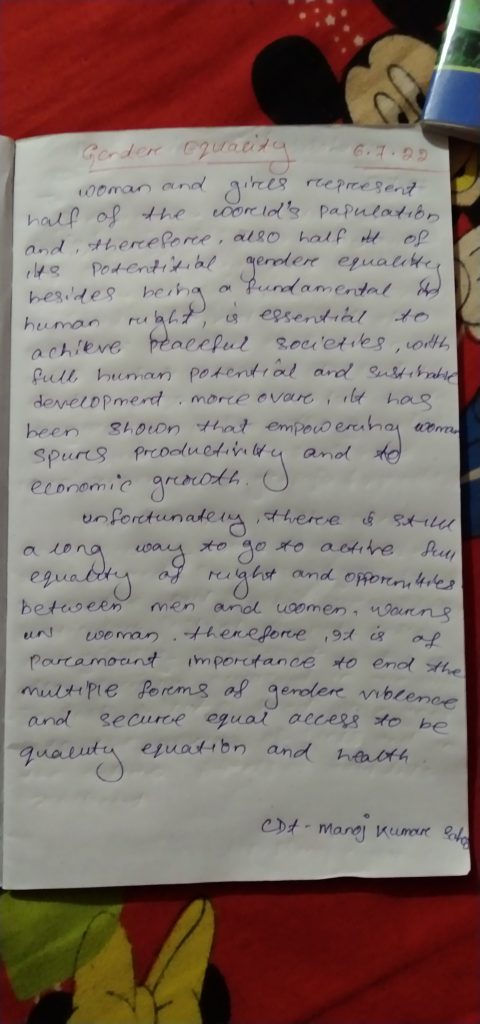 Gendere equality 6.7.22
woman and girls represent
half of the world's papulation
and, therefore, also half of
its potentitial gendere equality
besides being a fundamental
human right, is essential to
achieve peaceful societies, with
full human potential and sustinable
development. moreovare, it has
been shown that empowering woman
spurs productivity and to
economic growth.
unfortunately, there is still
a long way to go to active full
equality of right and opportnities
between men and women, warns
un woman. therefore, it is of
paramount importance to end the
multiple forms of gendere viblence
and secure equal access to be
quality equation and health.
CDt - Manoj Kumare